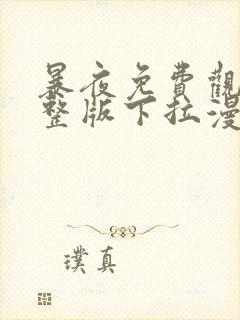 暴夜免費觀
整版下拉漫
璞真